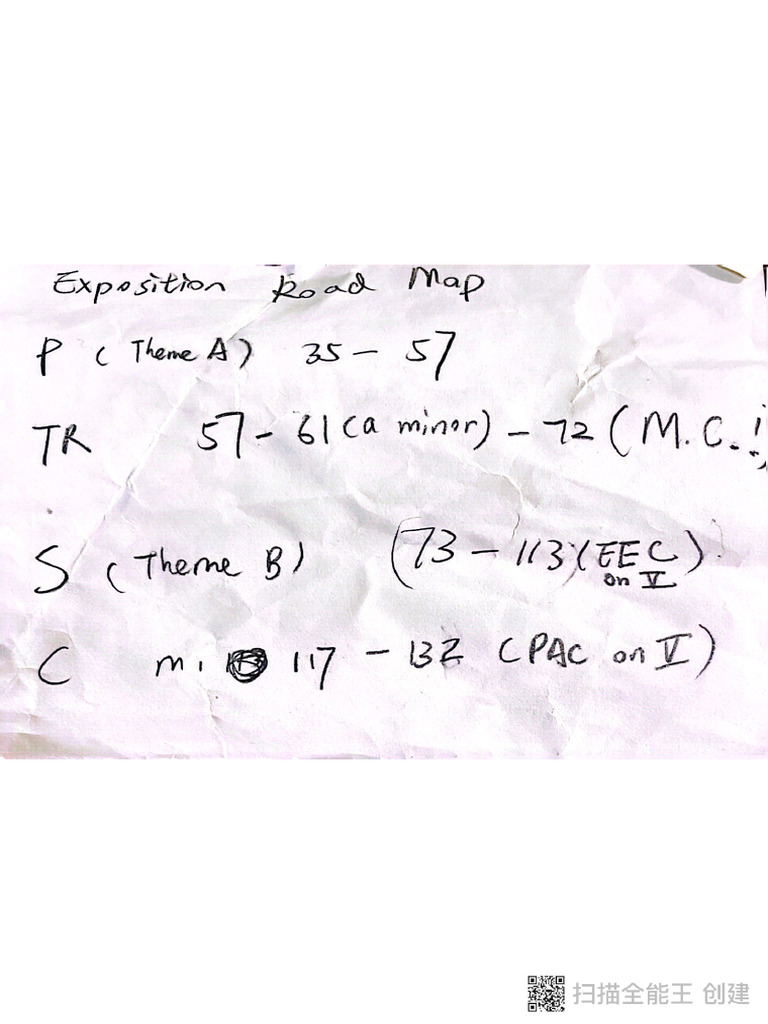 Exposition Road Map
P (Theme A) 35 - 57
TR 57 - 61 (a minor) - 72 (M.C.!)
S (Theme B) (73 - 113 (EEC on V)
C m. 117 - 132 (PAC on V)
扫描全能王 创建